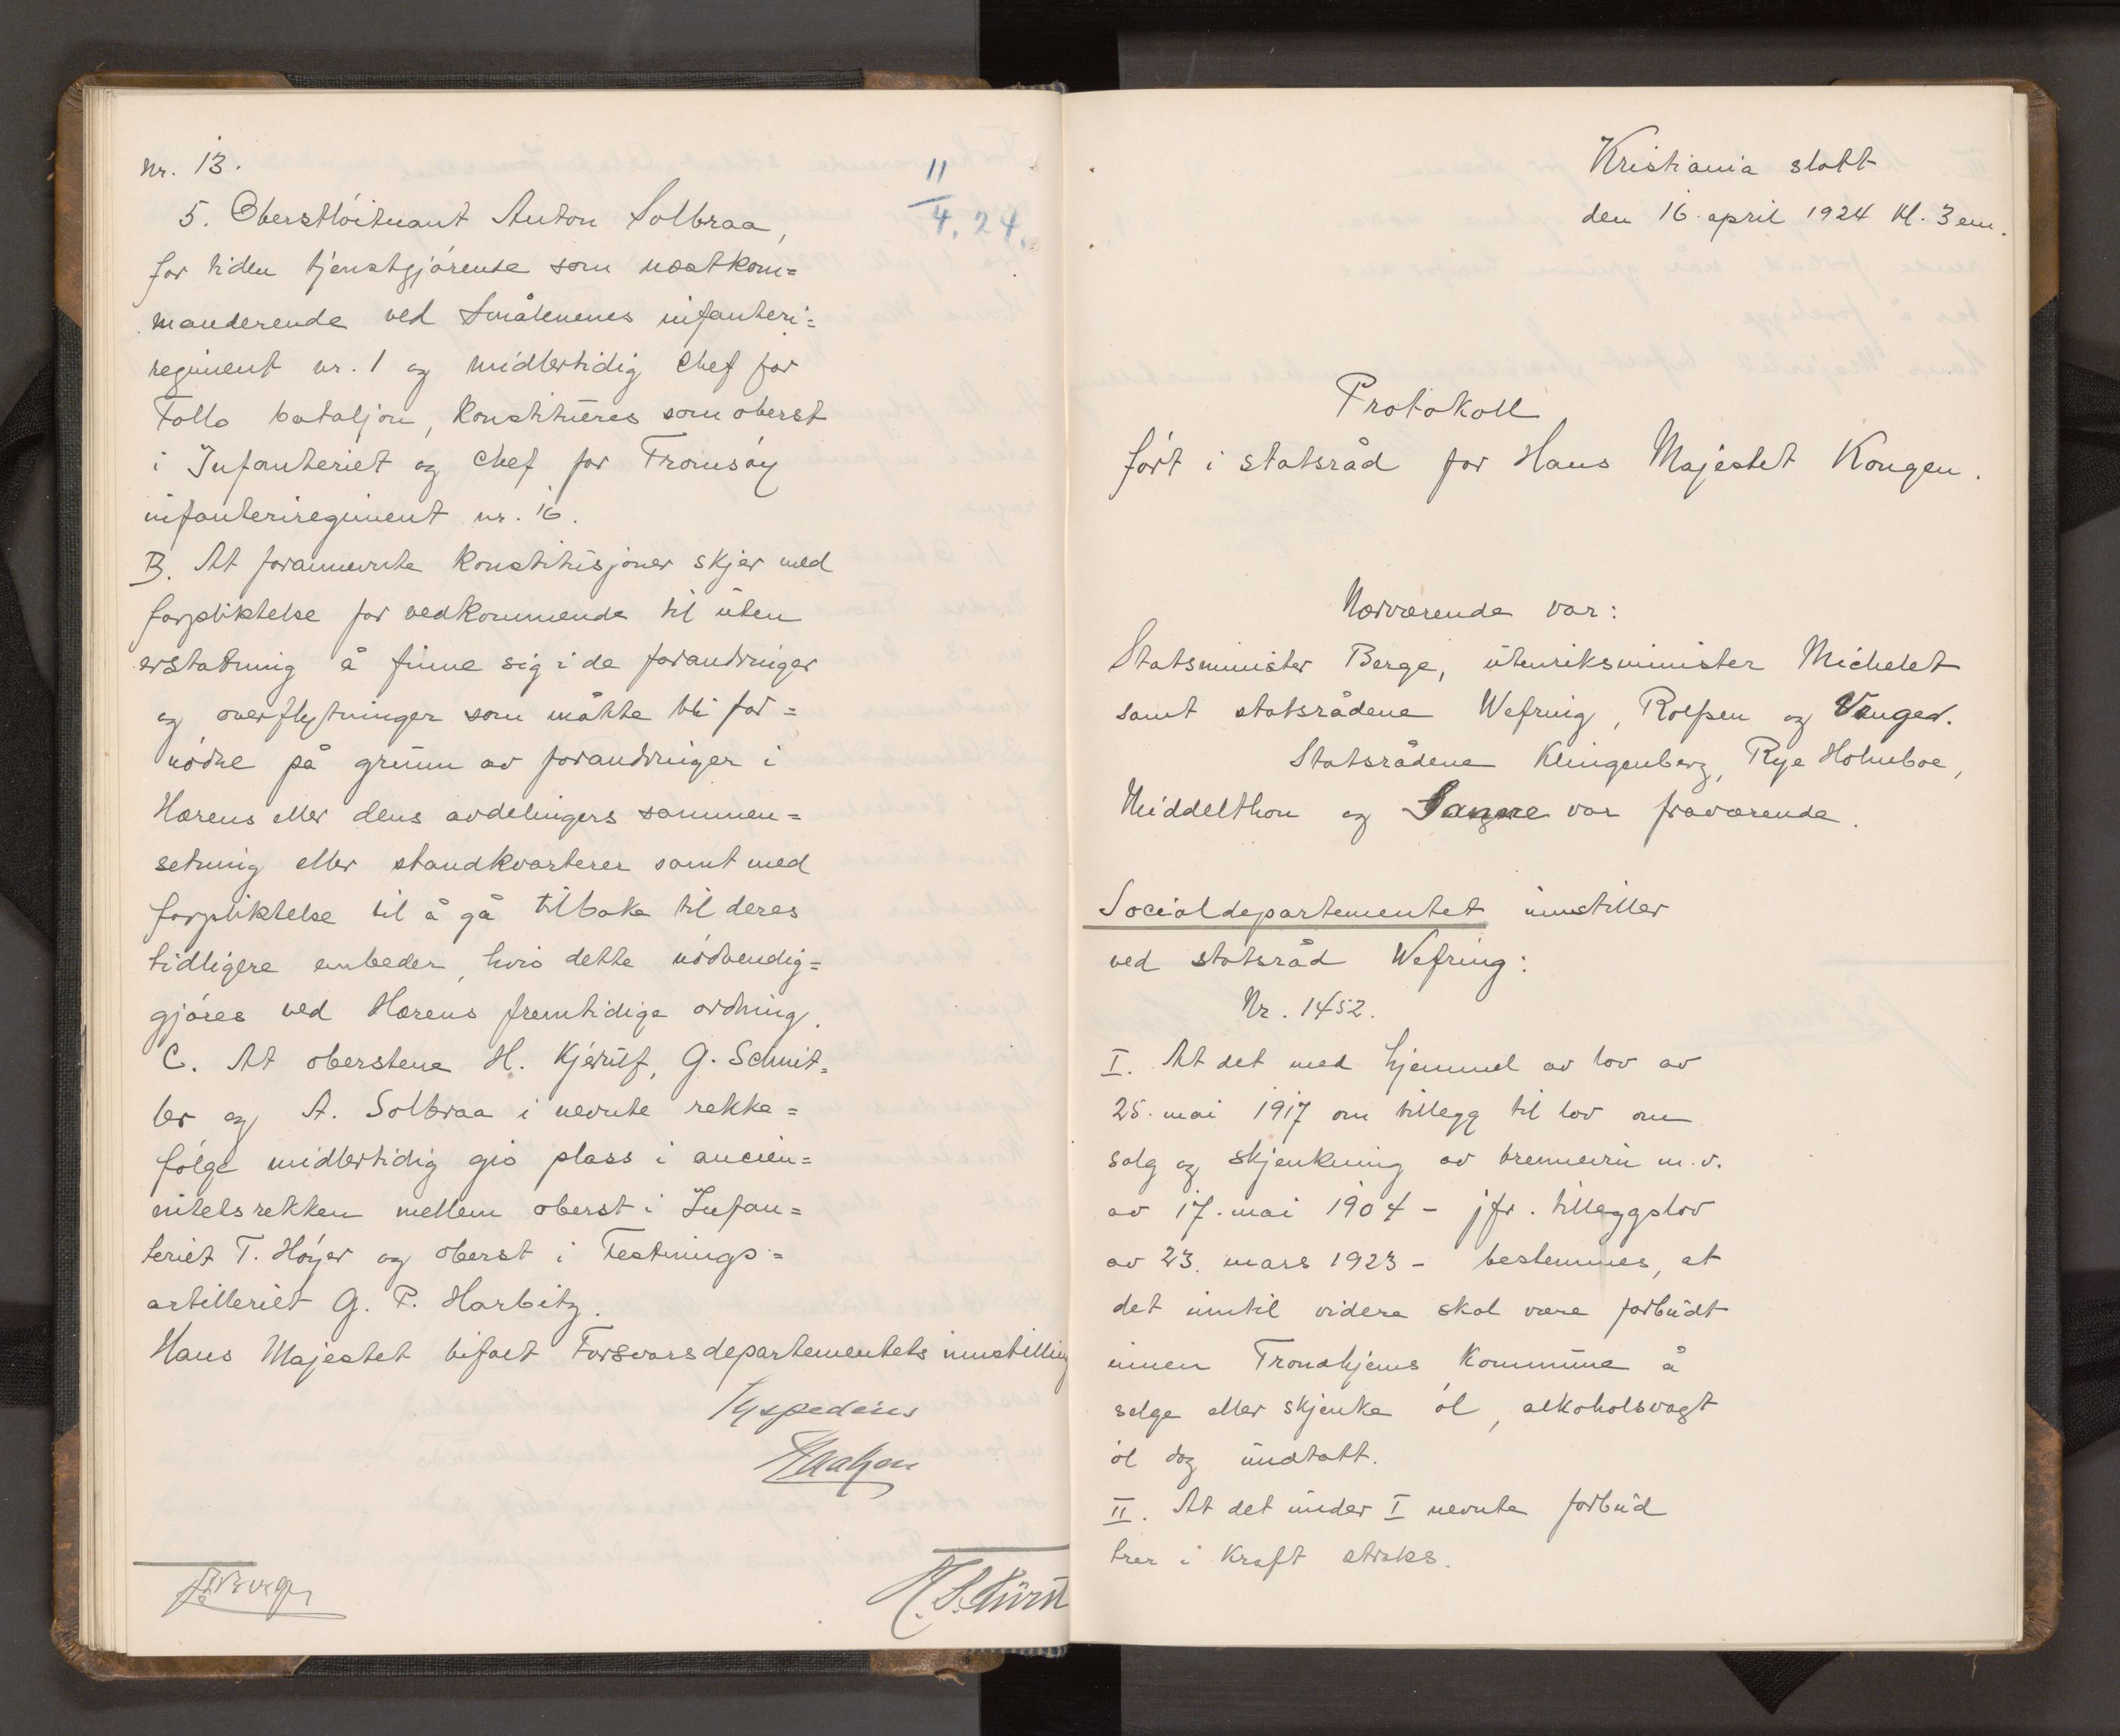 Nr. 13.
11/4. 24.
5. Oberstløitnant Anton Solbraa,
for tiden tjenstgjørende som næstkom=
manderende ved Smålenenes infanteri=
regiment nr. 1 og midlertidig chef for
Follo bataljon, konstitueres som oberst
i Infanteriet og chef for Tromsøy
infanteriregiment nr. 16.
B. At forannevnte konstitusjoner skjer med
forpliktelse for vedkommende til uten
erstatning å finne sig i de forandringer
og overflytninger som måtte bli for=
nødne på grunn av forandringer i
Hærens eller dens avdelingers sammen=
setning eller standkvarterer samt med
forpliktelse til å gå tilbake til deres
tidligere embeder, hvis dette nødvendig=
gjøres ved Hærens fremtidige ordning.
C. At oberstene H. Kjerulf, G. Schnit=
ler og A. Solbraa i nevnte rekke=
følge midlertidig gis plass i ancien=
nitetsrekken mellem oberst i Infan=
teriet T. Høyer og oberst i Festnings=
artilleriet G. P. Harbitz.
Hans Majestet bifalt Forsvarsdepartementets innstilling
Haakon
A. Berge
Kristiania slott
den 16. april 1924 kl. 3 em.
Protokoll
ført i statsråd for Hans Majestet Kongen.
Nærværende var:
Statsminister Berge, utenriksminister Michelet
samt statsrådene Wefring, Rolfsen og Venger.
Statsrådene Klingenberg, Rye Holmboe,
Middelthon og Sanne var fraværende.
Socialdepartementet innstiller
ved statsråd Wefring:
Nr. 1452.
I. At det med hjemmel av lov av
25. mai 1917 om tillegg til lov om
salg og skjenkning av brennevin m.v.
av 17. mai 1904 - jfr. tilleggslov
av 23. mars 1923 - bestemmes, at
det inntil videre skal være forbudt
innen Trondhjems kommune å
selge eller skjenke øl, alkoholsvagt
øl dog undtatt.
II. At det under I nevnte forbud
trer i kraft straks.